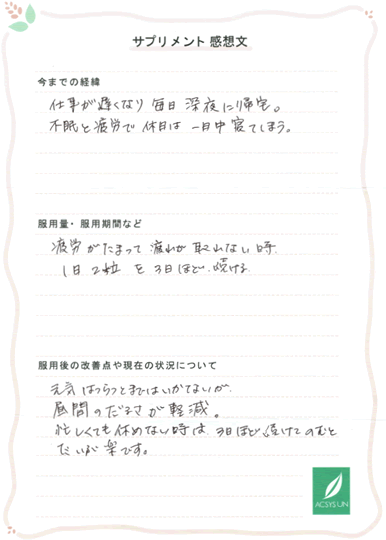 サプリメント 感想文
今までの経緯
仕事が遅くなり 毎日 深夜に帰宅。
不眠と疲労で 休日は 一日中 寝てしまう。
服用量・服用期間など
疲労がたまって 疲れが 取れない 時
1日 2粒 を 3日ほど 続ける
服用後の改善点や現在の状況について
元気 はつらつとまではいかないが
昼間のだるさが軽減。
忙しくても 休めない 時は 3日ほど 続けてのむと
だいぶ 楽です。
ACSYS UN